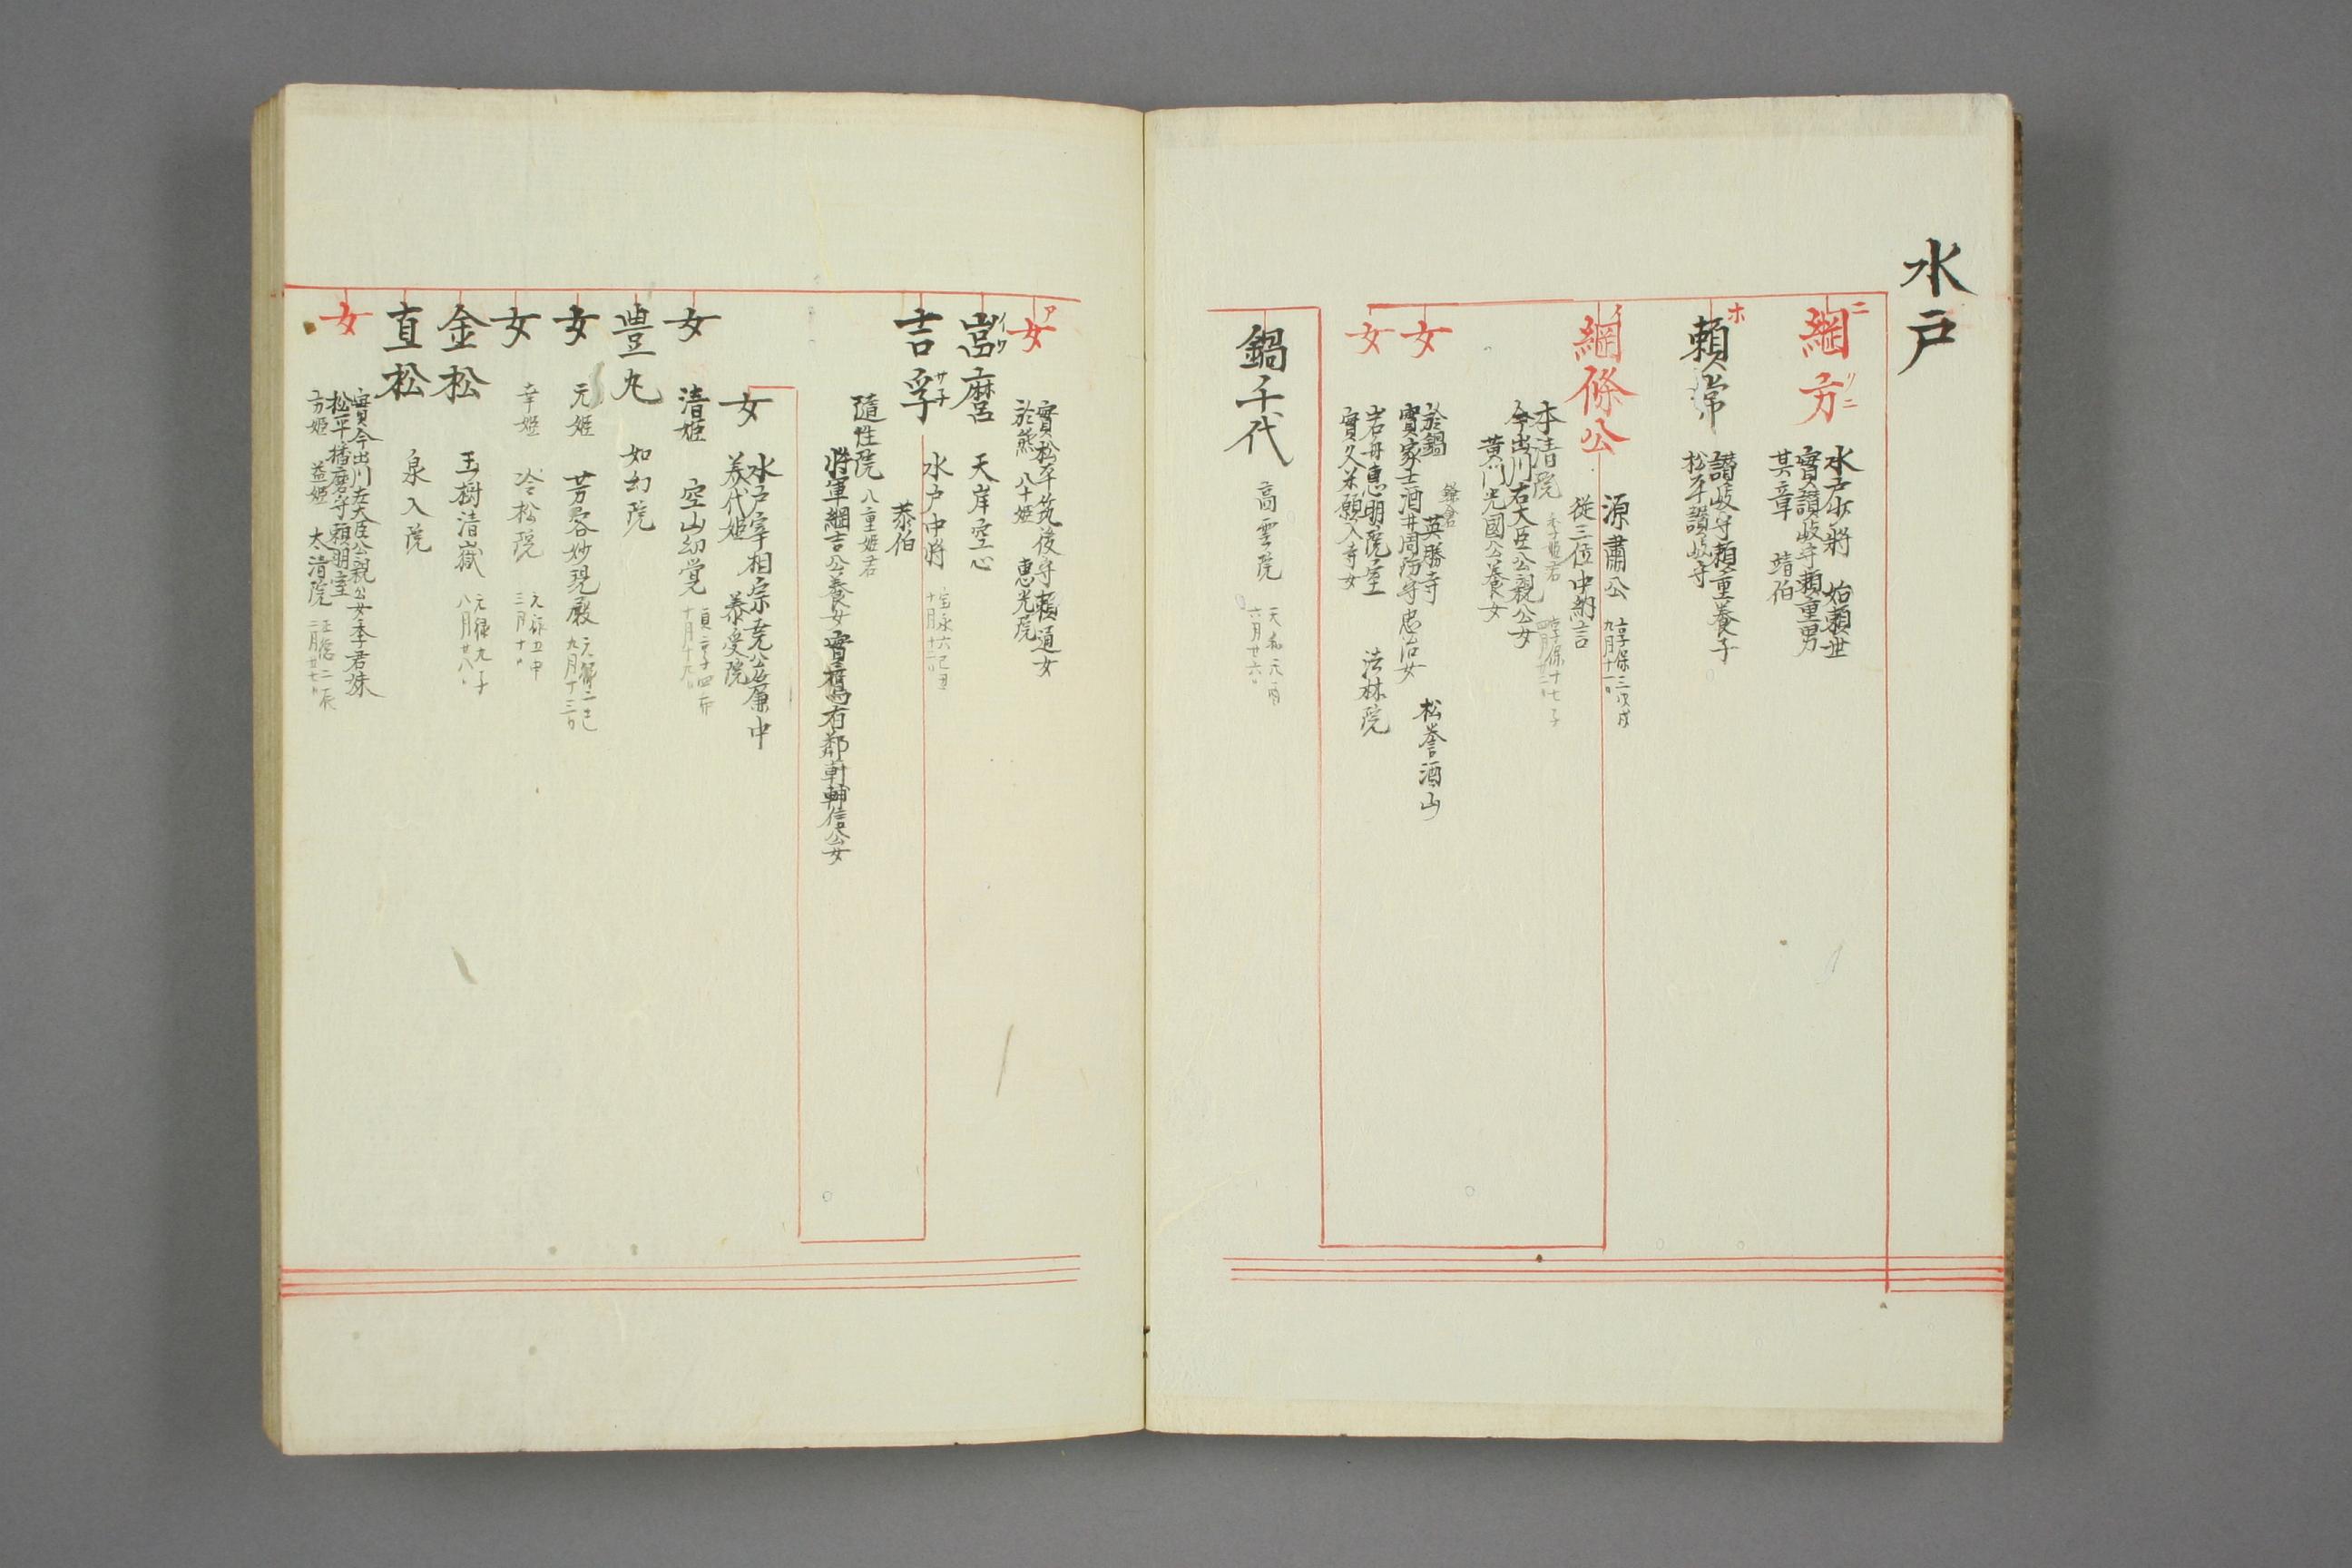 水戸
綱方
水戸少將 始頼世
實讃岐守頼重男
其章 靖伯
頼常
讃岐守頼重養子
松平讃岐守
綱條公
源肅公 享保三戊戌
九月十一日
從三位中納言
本清院 季姫君 享保十七子
今出川右大臣公親公女
黄門光國公養女
女
於鍋 鎌倉 英勝寺 松誉酒山
實家士酒井周防守忠治女
女
岩舟惠明院室 法林院
實久米願入寺女
鍋千代
高雲院 天和元酉
六月廿六日
女
實松平筑後守頼道女
於熊 八十姫 惠光院
嵓麿
天岸空心
吉孚
水戸中將 宝永六己丑
十月十二日
恭伯
隨性院 八重姫君
將軍綱吉公養女 實鷹司右鄰軒輔信公女
女
水戸宰相宗堯公簾中
美代姫 泰受院
女
清姫 空山幻覚 貞享四卯
十月十九日
豊丸
如幻院
女
元姫 芳谷妙現殿 元禄二巳
九月十三日
女
幸姫 冷松院 元禄五申
三月十日
金松
玉樹清嶽 元禄九子
八月廿八日
直松
泉入院
女
實今出川左大臣公親公女季君妹
松平播磨守頼明室
方姫 益姫 太清院 正德二辰
二月廿七日